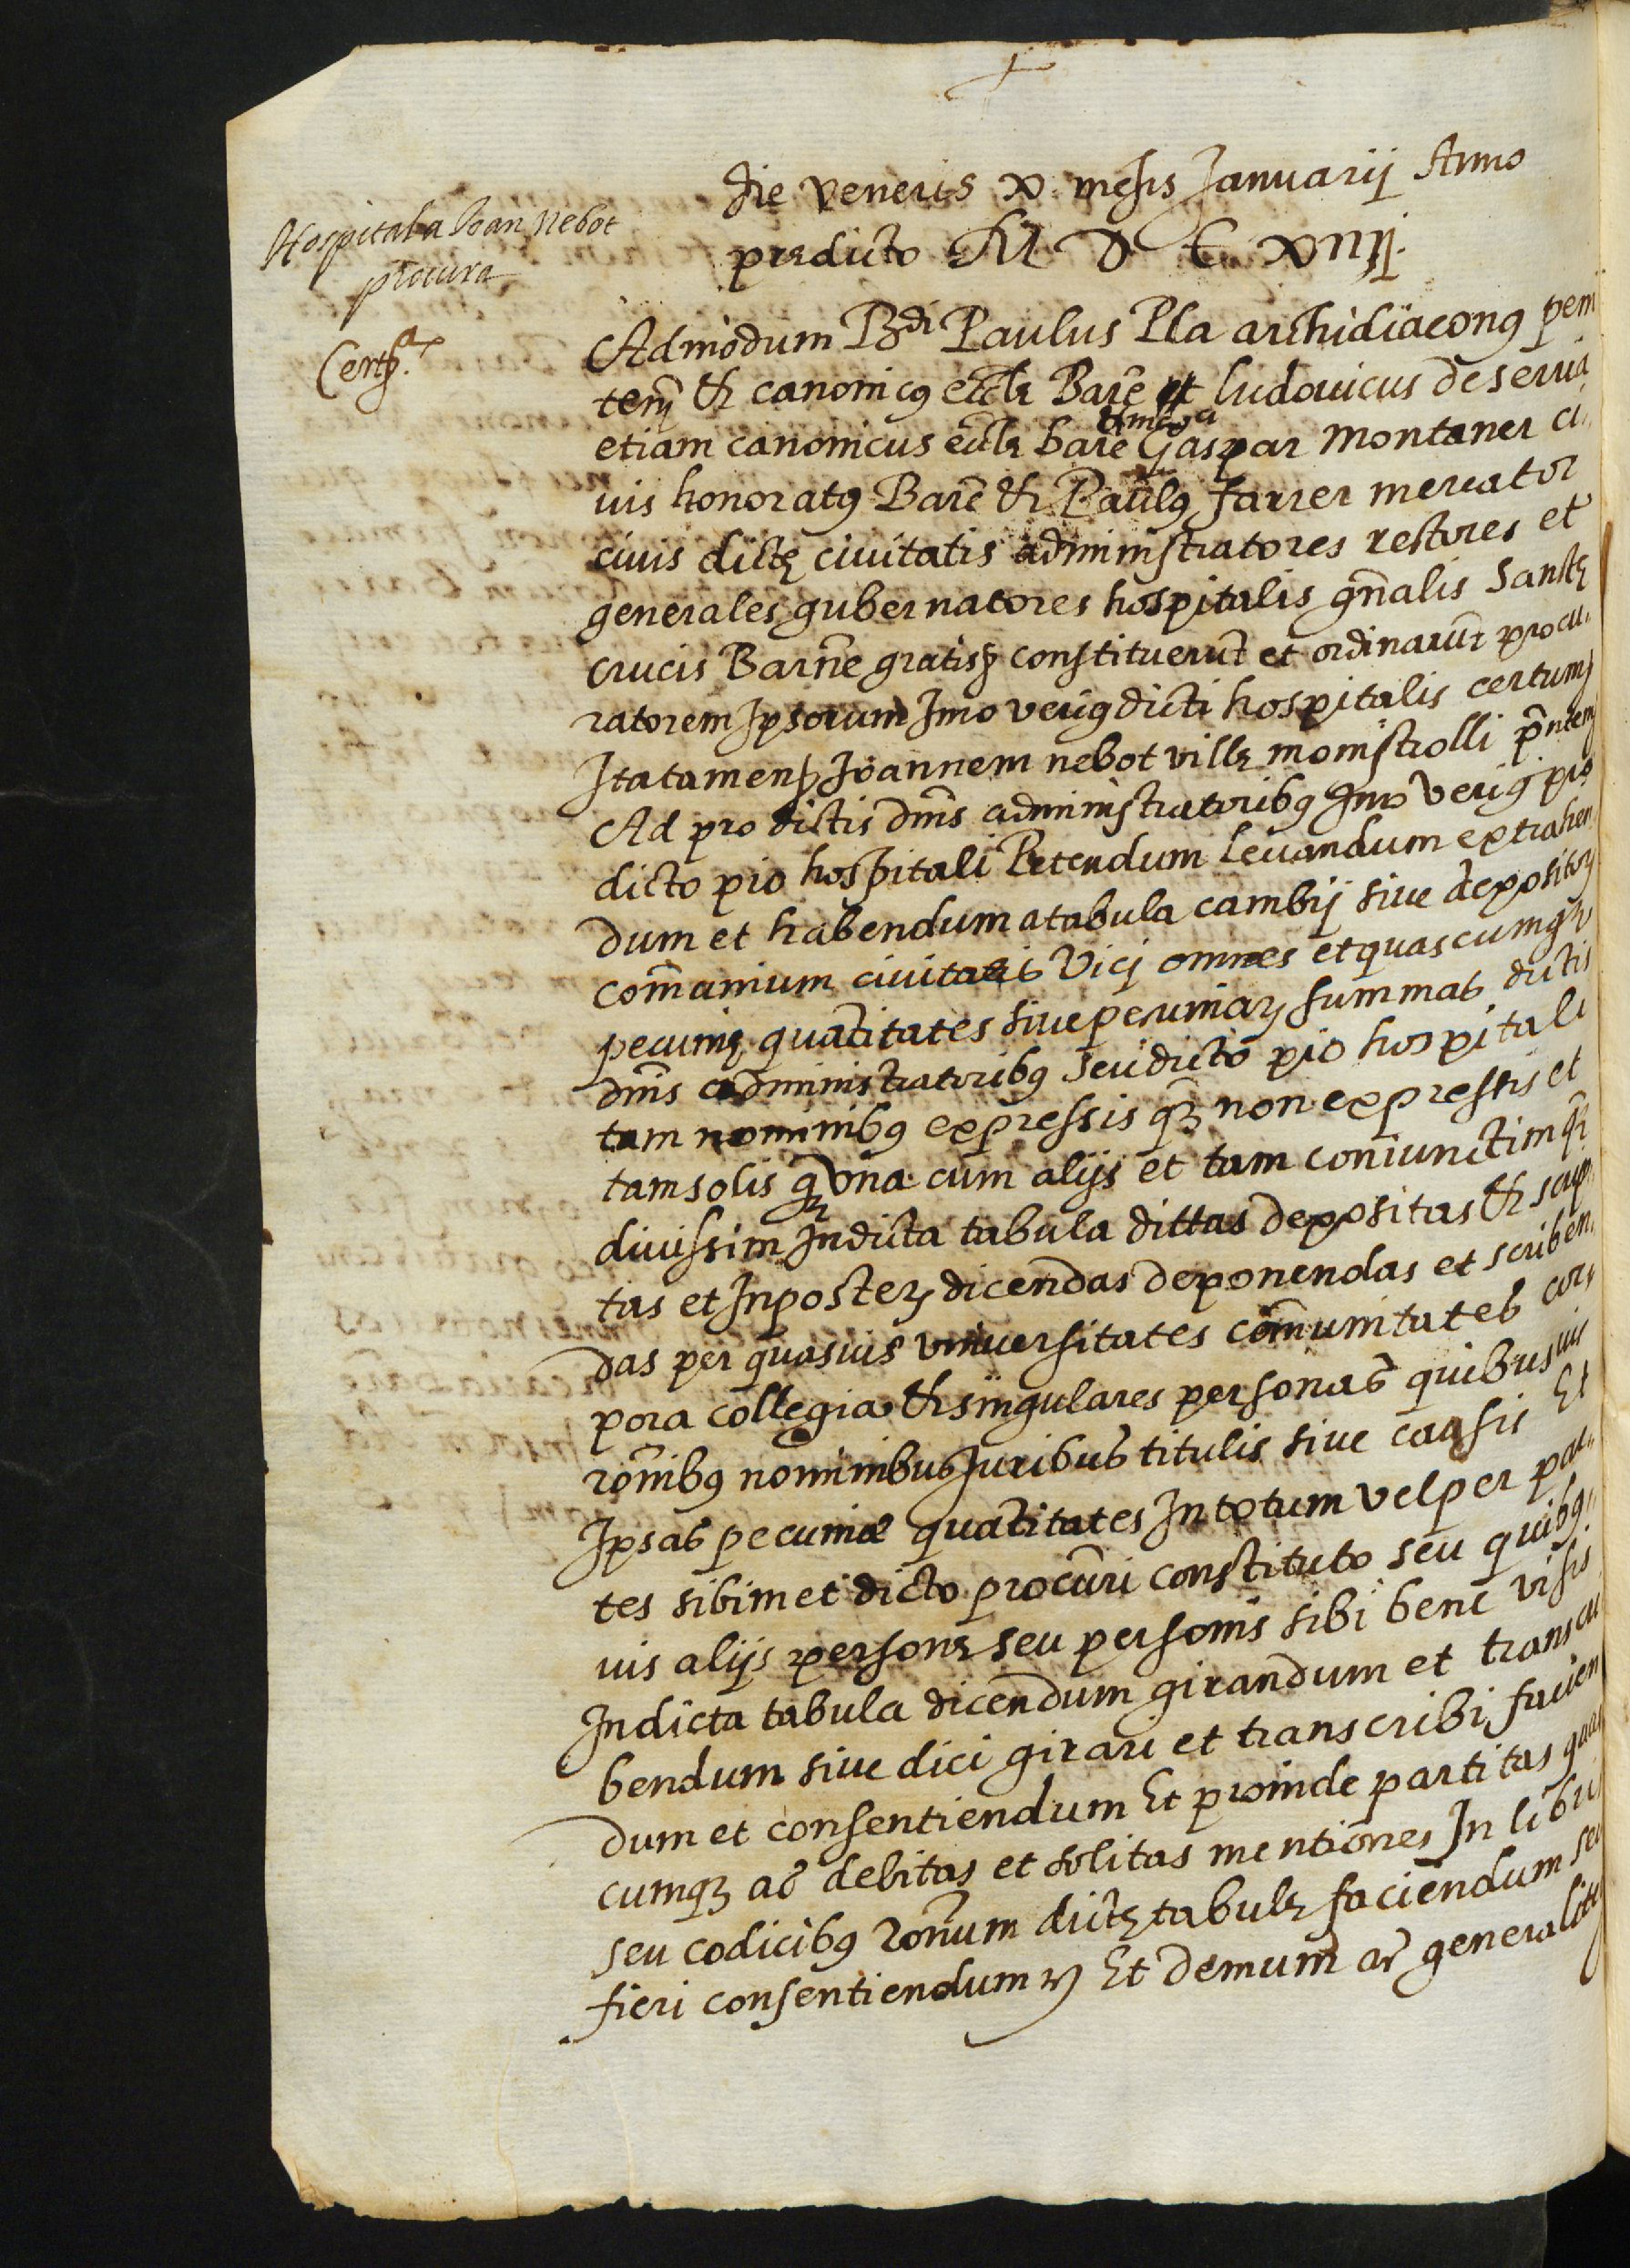 die veneris x mensis Januarij Anno
predicto M D C xiiij.
Hospital a Joan Nebot
procura
Certf.
Admodum Rdi Paulus Pla archidiaconꝯ peni
tem̃ & canonicꝯ eccłę Barẽ ludouicus de serria
etiam canonicus ecclę barẽ Gaspar Montaner ci
uis honoratꝯ Barẽ & Paulꝯ farrer mercator
ciuis dictę ciuitatis administratores rectores et
generales gubernatores hospitalis gñalis Sanctę
crucis Barñe gratis constituerũt et ordinarũt procu
ratorem Ipsorum Imo veriꝯ dicti hospitalis certum
Ita tamen Joannem nebot villę monistrolli pñtem
Ad pro dictis dñis administratoribꝯ Imo veriꝯ pro
dicto pio hospitali Petendum leuandum extrahen
dum et habendum a tabula cambij siue depositorꝝ
com̃unium ciuitatis Vici omnes et quascumqꝫ
pecunię quãtitates siue pecuniarꝝ summas dictis
dñis administratoribꝯ seu dicto pio hospitali
tam nominibꝯ expressis qꝫ non expressis et
tam solis qꝫ vna cum alijs et tam coniunctim qꝫ
diuissim In dicta tabula dittas depositas & scrip
tas et In posterꝝ dicendas deponendas et scriben
das per quasuis vniuersitates com̃unitates cor
pora collegia & singulares personas quibusuis
rõnibꝯ nominibus Juribus titulis siue causis Et
Ipsas pecuniæ quãtitates In totum vel per par
tes sibimet dicto procuri constituto seu quibꝯ
uis alijs personę seu personis sibi bene visis
In dicta tabula dicendum girandum et transcri
bendum siue dici girari et transcribi facien
dum et consentiendum Et proinde partitas quas
cumqꝫ ac debitas et solitas mentiones In libris
seu codicibꝯ rõnum dictę tabulę faciendum seu
fieri consentiendum Et demum ac generaliter